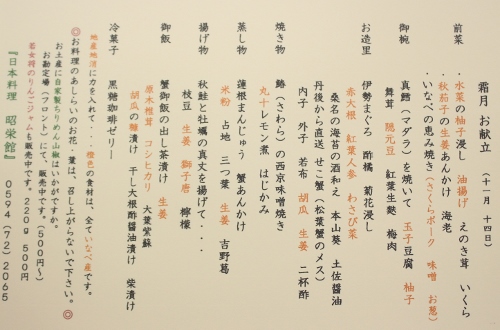 霜月 お献立 (十一月 十四日)
前菜 ・水菜の柚子浸し 油揚げ えのき茸 いくら
・秋茄子の生姜あんかけ 海老
・いなべの恵み焼き(さくらポーク 味噌 お葱)
御椀 真鱈(マダラ)を焼いて 玉子豆腐 柚子
舞茸 隠元豆 紅葉生麩 梅肉
お造里 伊勢まぐろ 酢橘 菊花浸し
赤大根 紅葉人参 わさび菜
桑名の海苔の酒和え 本山葵 土佐醤油
丹後から直送 せこ蟹(松葉蟹のメス)
内子 外子 若布 胡瓜 生姜 二杯酢
焼き物 鰆(さわら)の西京味噌焼き
丸十レモン煮 はじかみ
蒸し物 蓮根まんじゅう 蟹あんかけ
米粉 占地 三つ葉 生姜 吉野葛
揚げ物 秋鮭と牡蠣の真丈を揚げて・・・
枝豆 生姜 獅子唐 檸檬
御飯 蟹御飯の出し茶漬け 生姜
原木椎茸 コシヒカリ 大葉紫蘇
胡瓜の糠漬け 干し大根酢醤油漬け 柴漬け
冷菓子 黒糖珈琲ゼリー
地産地消に力を入れて・・橙色の食材は、全ていなべ産です。
◎お料理のあしらいのお花・葉は、召し上がらないで下さい。◎
お土産に自家製ちりめん山椒はいかがですか。
お勘定場(フロント)にて、販売中です。(500円~)
若女将のりんごジャムも販売中です。220g 500円
『日本料理 昭栄館』 0594(72)2065